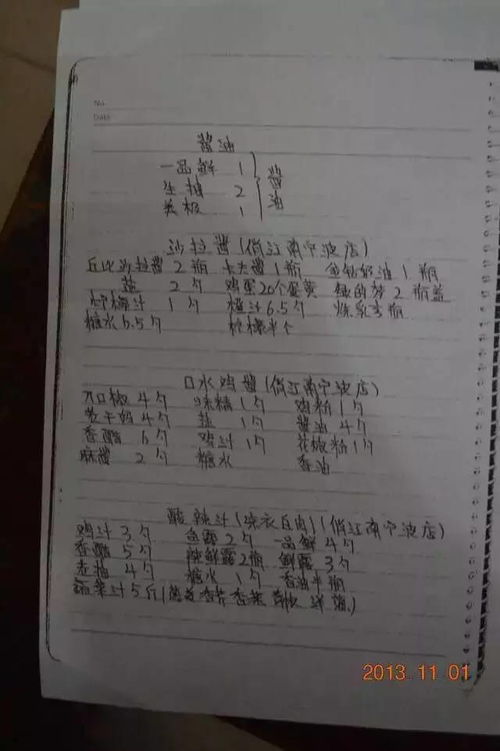 No.
Date
酱油
一品鲜 1
生抽 2 酱油
美极 1
沙拉酱(俏江南宁波店)
丘比沙拉酱2瓶 卡夫酱1瓶 奶油1瓶
盐 2勺 鸡蛋20个蛋黄 2瓶盖
柠檬汁 1勺 橙汁6.5勺 炼乳 瓶
糖水6.5勺 柠檬半个
口水鸡酱(俏江南宁波店)
椒4勺 味精1勺 鸡粉1勺
老干妈4勺 盐1勺 酱油4勺
香醋6勺 鸡汁1勺 花椒粉1勺
麻酱2勺 糖水 香油
酸辣汁(白肉)(俏江南宁波店)
鸡汁3勺 鱼露2勺 一品鲜4勺
香醋5勺 辣鲜露2瓶 鲜露3勺
4勺 糖水1勺 香油半瓶
蔬菜汁5斤( 香芹 香菜 )
2013.11.01